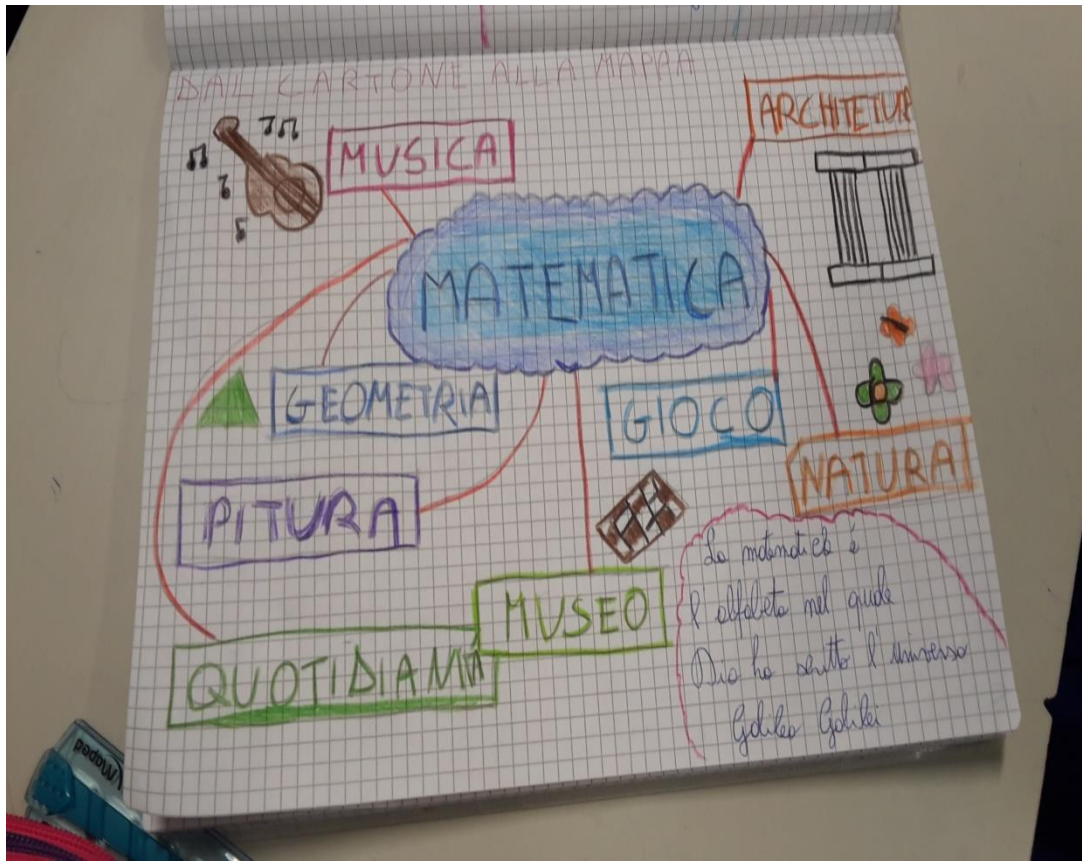 DAL CARTONE ALLA MAPPA
MUSICA
ARCHITETUR
MATEMATICA
GEOMETRIA
GIOCO
NATURA
PITURA
MUSEO
QUOTIDIANA
La matematica è
l'alfabeto nel quale
Dio ha scritto l'universo
Galileo Galilei
Maped